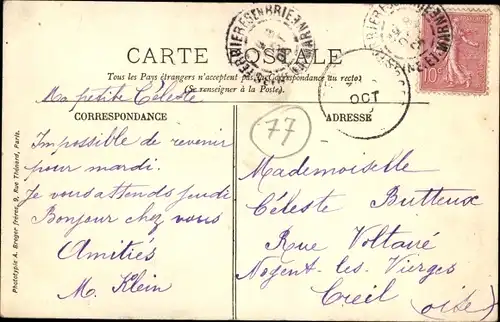 CARTE POSTALE
Tous les Pays étrangers n'acceptent pas la Correspondance au recto
(Se renseigner à la Poste).
CORRESPONDANCE
Ma petite Céleste
Impossible de revenir
pour mardi.
Je vous attends jeudi
Bonjour chez vous
Amitiés
M. Klein
Phototypie A. Breger frères, 9, Rue Thénard, Paris.
77
OCT
10c
ADRESSE
Mademoiselle
Céleste Butteux
Rue Voltaire
Nogent-les-Vierges
Creil (oise)